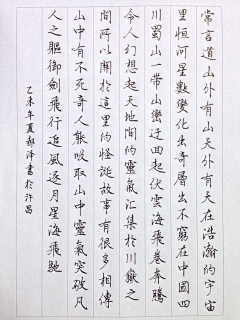 常言道山外有山天外有天在浩瀚的宇宙
里恒河星數變化出奇層出不窮在中國四
川蜀山一帶山巒迂曲起伏雲海飛卷奔騰
令人幻想起天地間的靈氣匯集於川嶽之
間所以關於這里的怪誕故事有很多相傳
山中有不死奇人能吸取山中靈氣突破凡
人之軀御劍飛行追風逐月星海飛馳
乙未年夏郝泽書於許昌